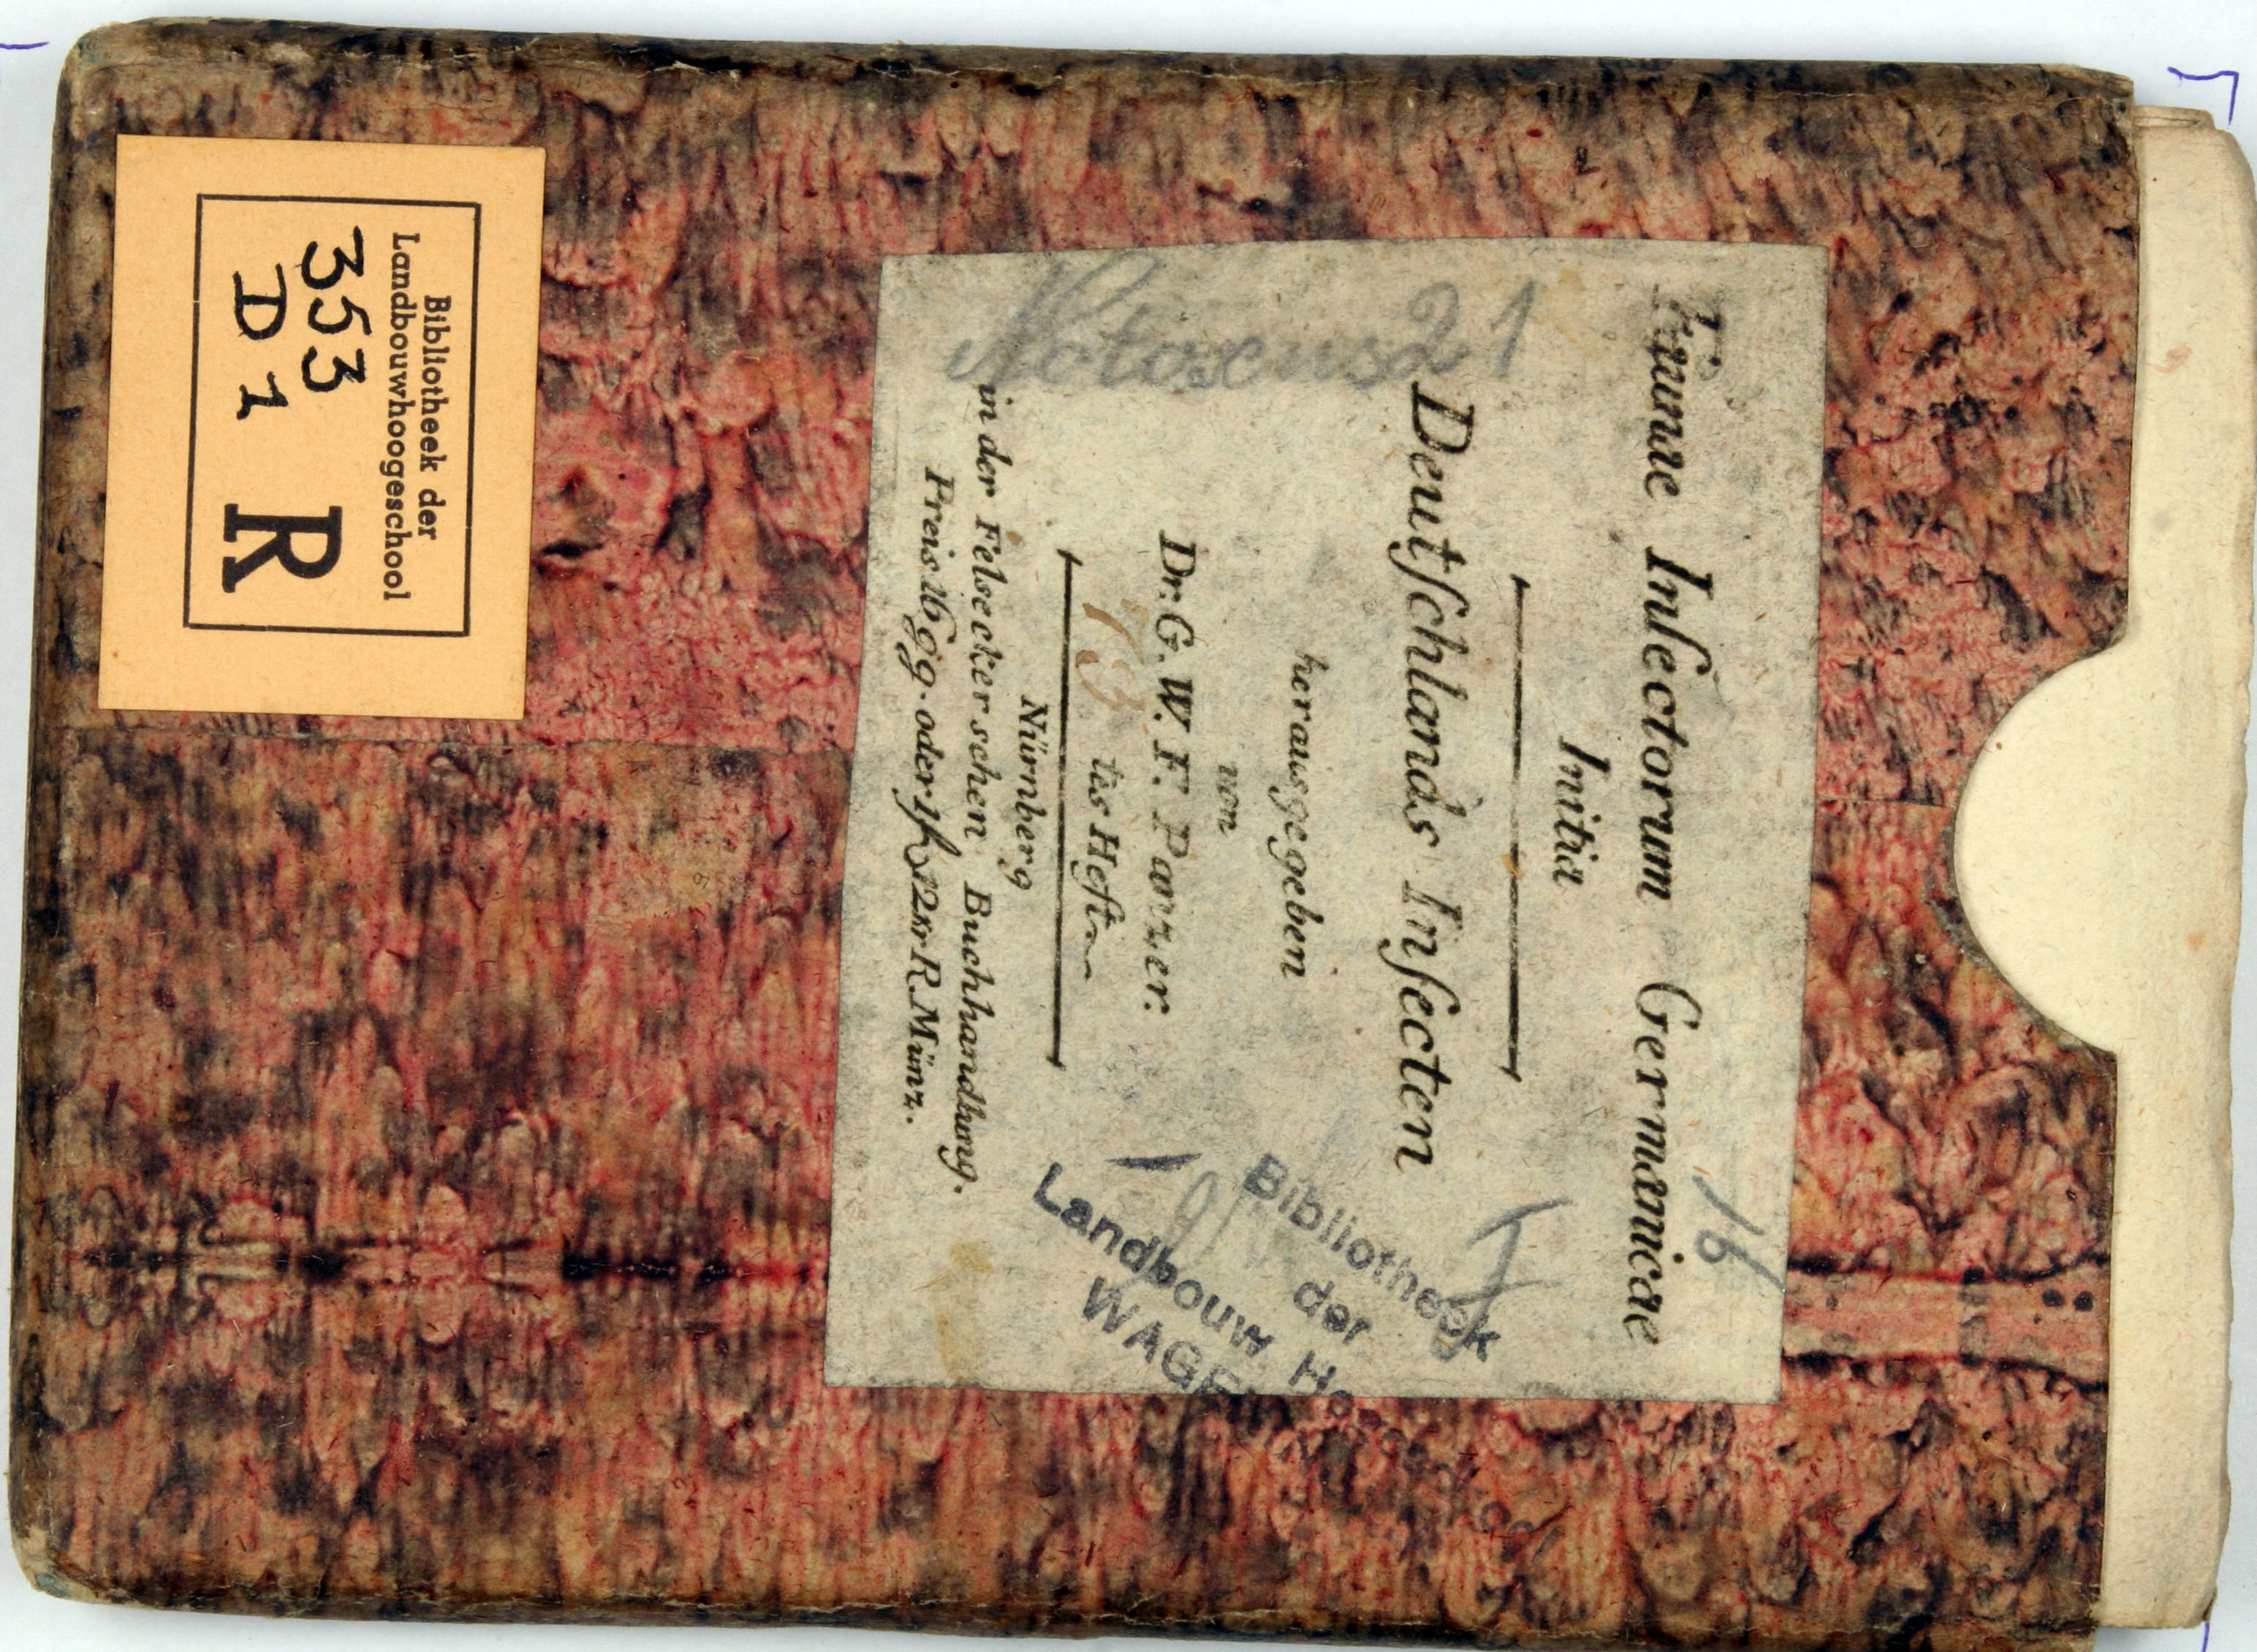 Faunae Insectorum Germanicae
Initia
Deutſchlands Inſecten
herausgegeben
von
Dr. G. W. F. Panzer.
tes Heft
Nürnberg
in der Felseckerschen Buchhandlung.
Preis 16 gg. oder 1 f 12 kr R. Münz.
Notoxus 21
16
Bibliotheek
der
Landbouw
Bibliotheek der
Landbouwhoogeschool
353
D 1
R